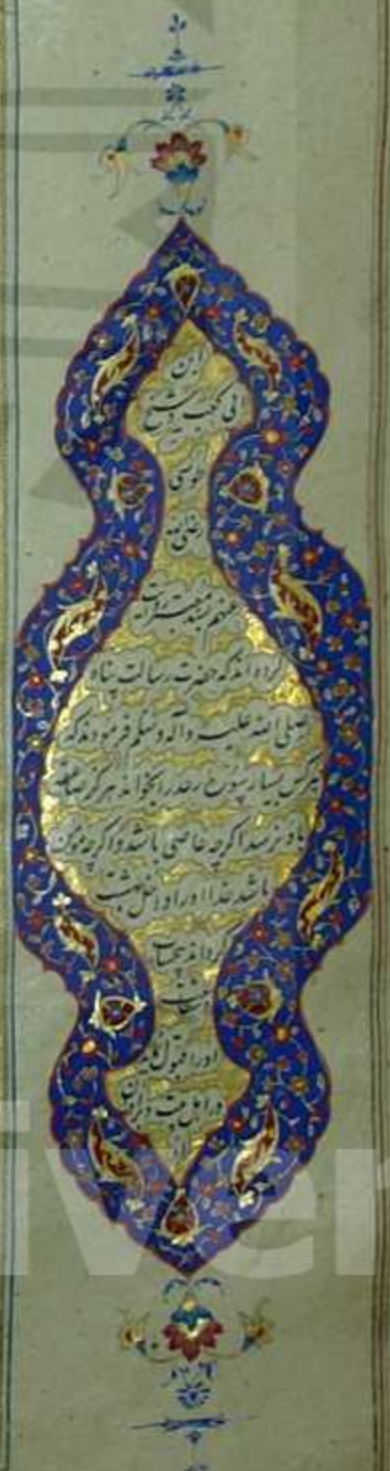 ابن
ابی کعب شیخ
طوسی
رضی الله
عنهم بسند معتبر روایت
کرده اند که حضرت رسالت پناه
صلی الله علیه و آله وسلم فرمودند که
هر کس بسیار سوره رعد را بخواند هرگز صاعقه
باو نرسد اگرچه ناصبی باشد و اگرچه مؤمن
باشد خدا او را داخل بهشت
گرداند بیحساب
شفاعت
او را قبول
در اهل بیت و برادران
iver